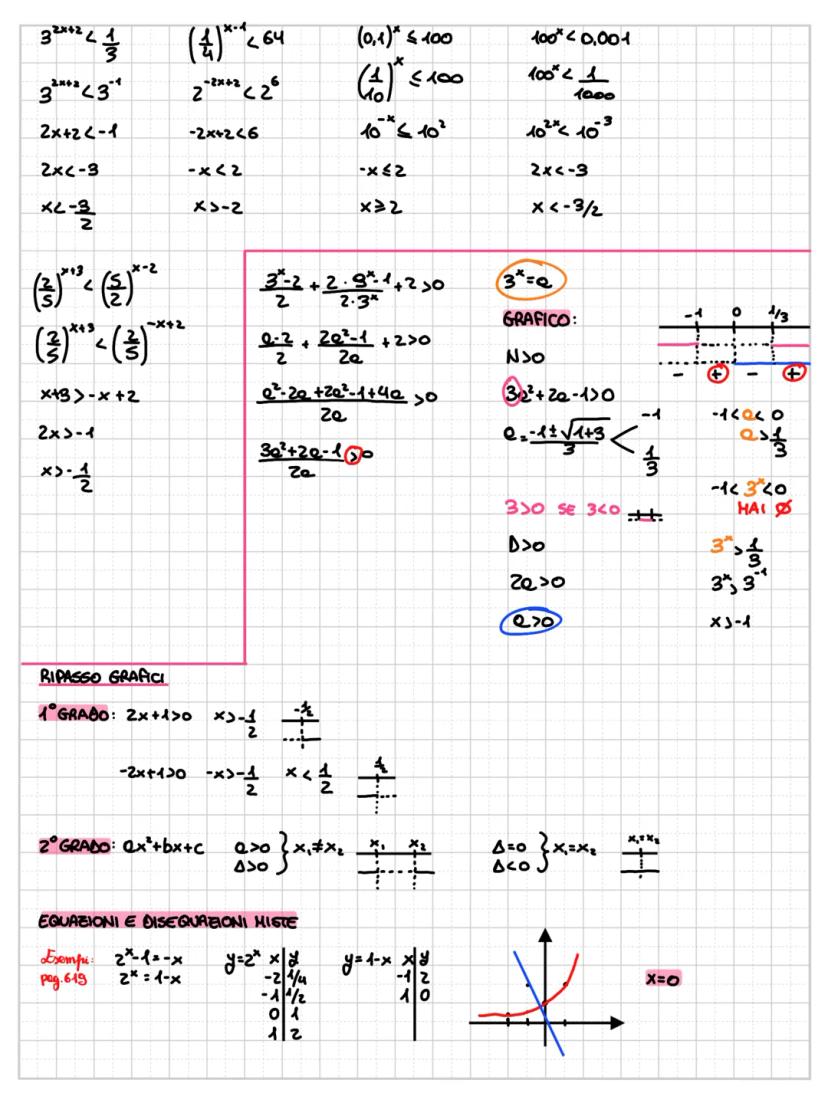 3^{2x+2} < 1/3
3^{2x+2} < 3^{-1}
2x+2 < -1
2x < -3
x < -3/2
(1/4)^{x-1} < 64
2^{-2x+2} < 2^6
-2x+2 < 6
-x < 2
x > -2
(0,1)^x ≤ 100
(1/10)^x ≤ 100
10^{-x} ≤ 10^2
-x ≤ 2
x ≥ 2
100^x < 0,001
100^x < 1/1000
10^{2x} < 10^{-3}
2x < -3
x < -3/2
(2/5)^{x+3} < (5/2)^{x-2}
(2/5)^{x+3} < (2/5)^{-x+2}
x+3 > -x+2
2x > -1
x > -1/2
(3^x-2)/2 + (2·9^x-1)/(2·3^x) + 2 > 0
(a-2)/2 + (2a²-1)/(2a) + 2 > 0
(a²-2a+2a²-1+4a)/(2a) > 0
(3a²+2a-1)/(2a) > 0
3^x = a
GRAFICO:
N>0
3a²+2a-1>0
a = (-1±√(1+3))/3 < -1 1/3
3>0 SE 3<0
D>0
2a>0
a>0
-1 0 1/3
- + - +
-1<a<0
a>1/3
-1<3^x<0
MAI Ø
3^x > 1/3
3^x > 3^{-1}
x>-1
RIPASSO GRAFICI
1° GRADO: 2x+1>0 x>-1/2 -1/2
-2x+1>0 -x>-1/2 x<1/2 1/2
2° GRADO: ax²+bx+c a>0 Δ>0 } x₁≠x₂ x₁ x₂ Δ=0 Δ<0 } x₁=x₂ x₁=x₂
EQUAZIONI E DISEQUAZIONI MISTE
Esempi: 2^x-1=-x y=2^x x y y=1-x x y
pag.619 2^x=1-x -2 1/4 -1 2 x=0
-1 1/2 1 0
0 1
1 2